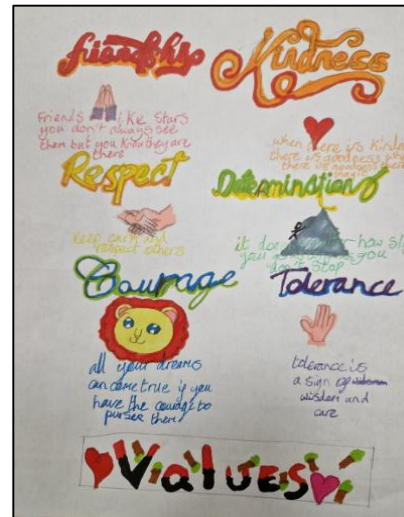 friendship
Kindness
Friends like stars
you don't always see
them but you know they are
there
when there is kind
there is goodness
there is goodness there
magic
Respect
Determination
keep calm and
respect others
it does how sl
you you
don't stop
Courage
Tolerance
all your dreams
can come true if you
have the courage to
pursee them
tolerance is
a sign of
wisdom and
care
Values